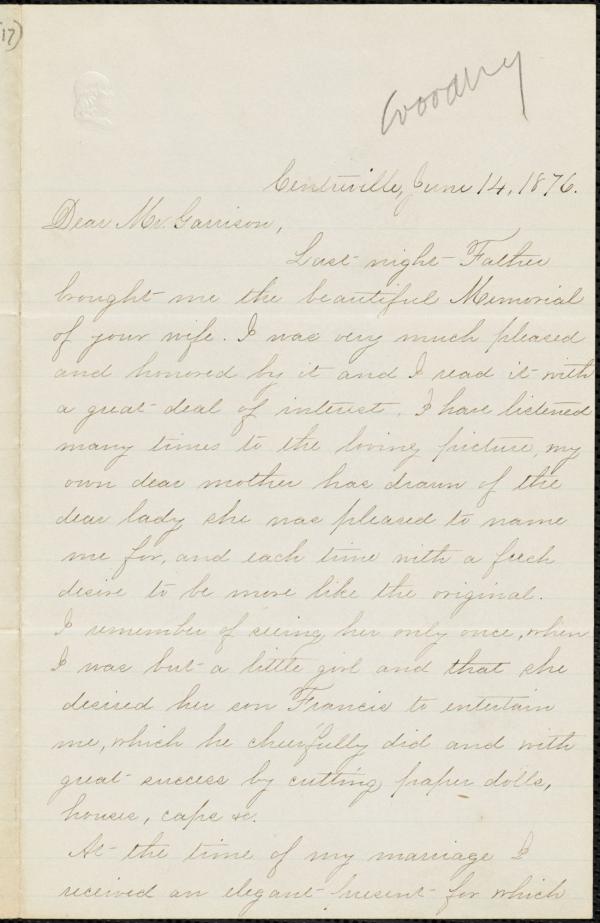 17)
Centreville, June 14, 1876.
Dear Mr. Garrison,
Last night Father
brought me the beautiful Memorial
of your wife. I was very much pleased
and honored by it and I read it with
a great deal of interest. I have listened
many times to the loving picture, my
own dear mother has drawn of the
dear lady she was pleased to name
me for, and each time with a fresh
desire to be more like the original.
I remember of seeing her only once, when
I was but a little girl and that she
desired her son Francis to entertain
me, which he cheerfully did and with
great success by cutting paper dolls,
houses, caps &c.
At the time of my marriage I
received an elegant present for which